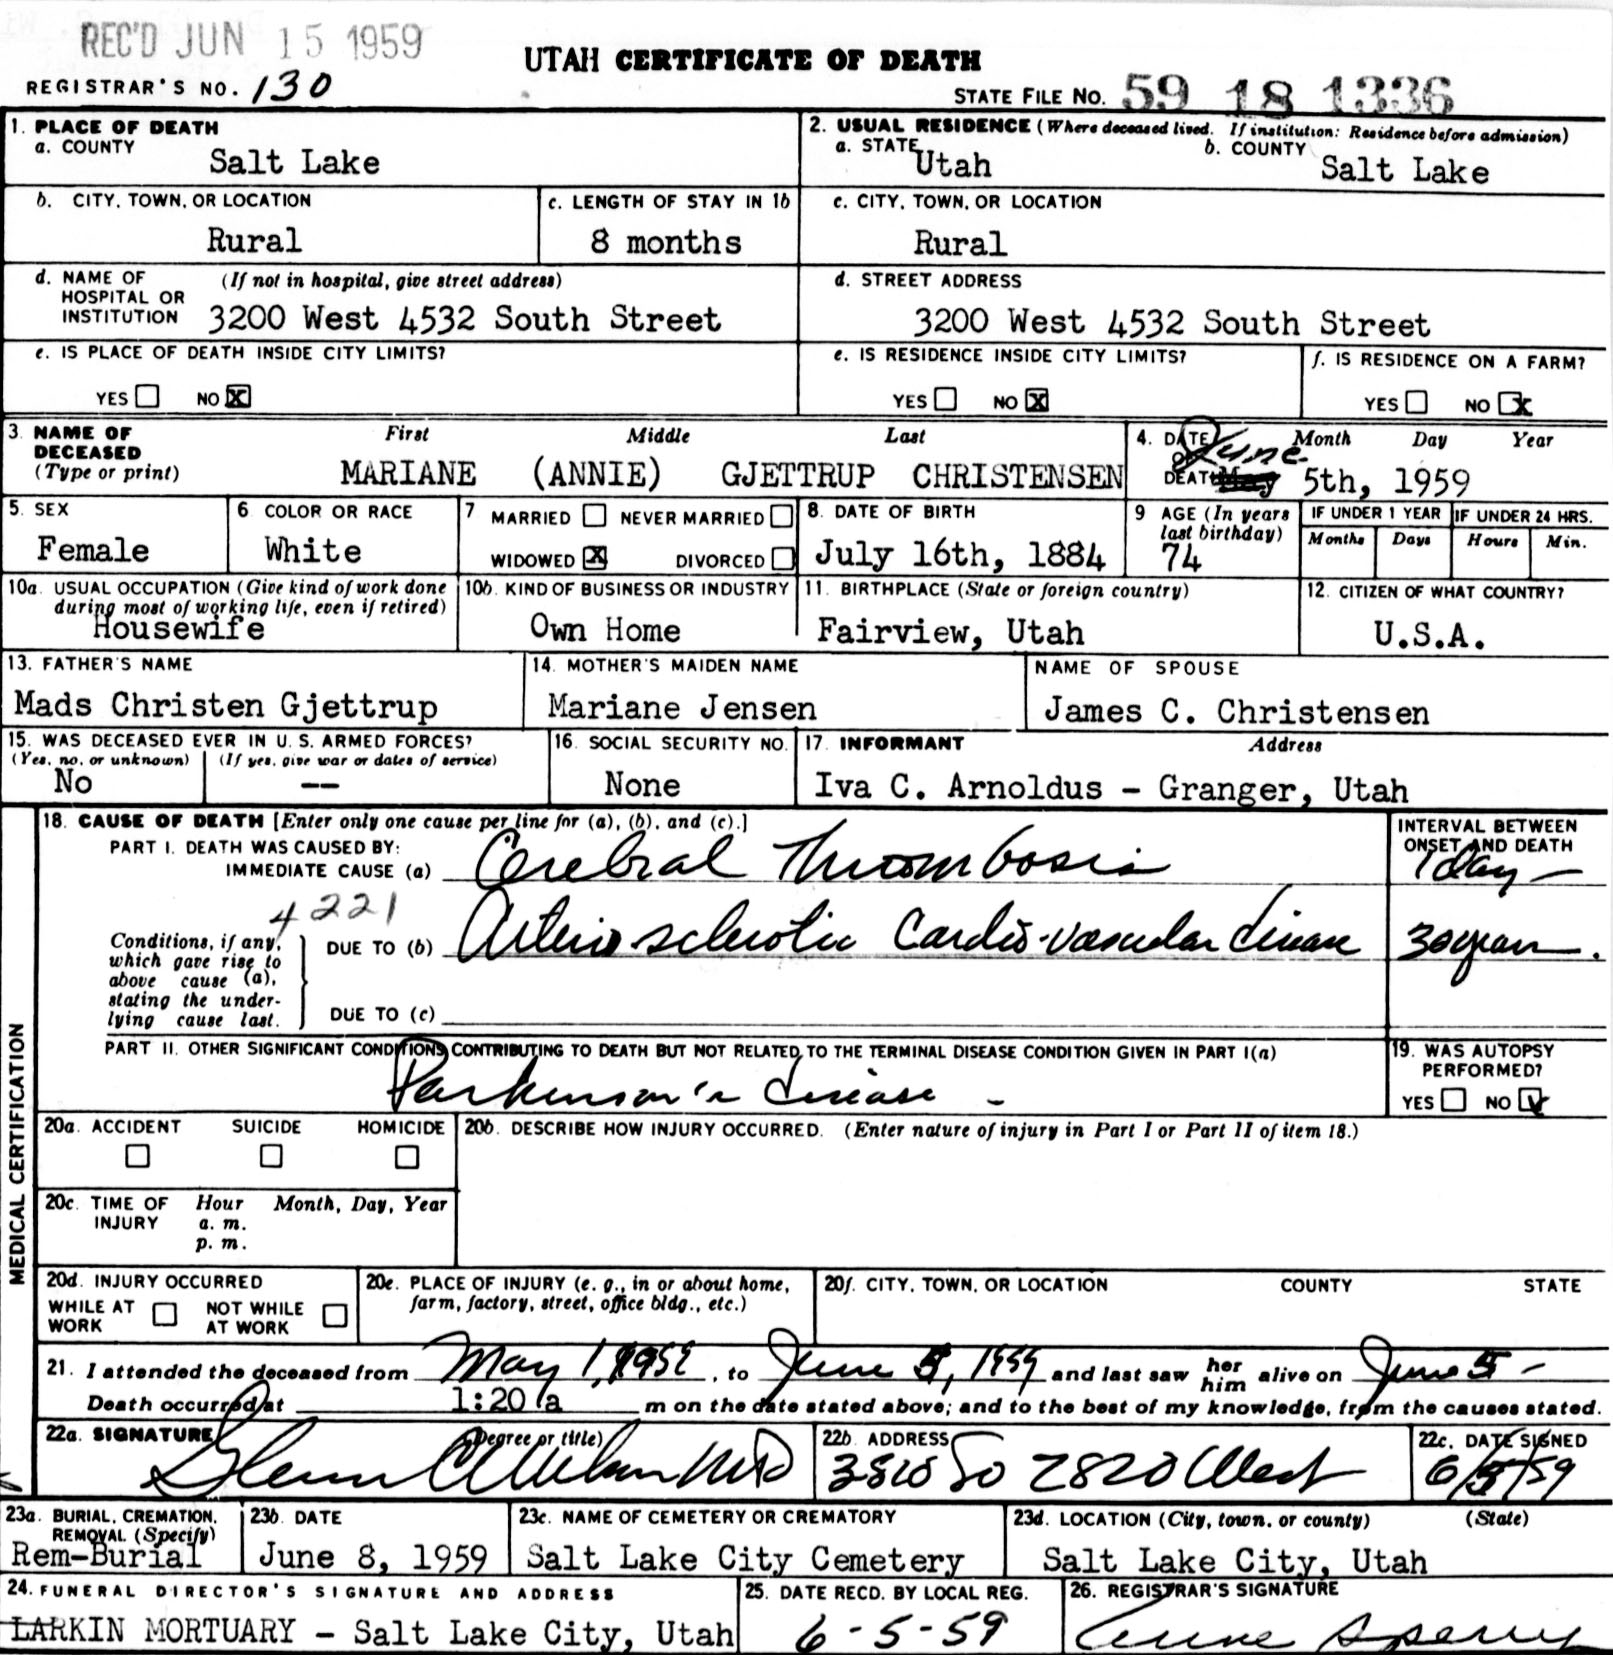 REC'D JUN 15 1959
UTAH CERTIFICATE OF DEATH
REGISTRAR'S NO. 130
STATE FILE NO. 59 18 1336
1. PLACE OF DEATH
a. COUNTY
Salt Lake
2. USUAL RESIDENCE (Where deceased lived. If institution: Residence before admission)
a. STATE
Utah
b. COUNTY
Salt Lake
b. CITY, TOWN, OR LOCATION
Rural
c. LENGTH OF STAY IN 1b
8 months
c. CITY, TOWN, OR LOCATION
Rural
d. NAME OF HOSPITAL OR INSTITUTION
(If not in hospital, give street address)
3200 West 4532 South Street
d. STREET ADDRESS
3200 West 4532 South Street
e. IS PLACE OF DEATH INSIDE CITY LIMITS?
YES NO X
e. IS RESIDENCE INSIDE CITY LIMITS?
YES NO X
f. IS RESIDENCE ON A FARM?
YES NO X
3. NAME OF DECEASED
(Type or print)
First Middle Last
MARIANE (ANNIE) GJETTRUP CHRISTENSEN
4. DATE OF DEATH
Month Day Year
June 5th, 1959
5. SEX
Female
6 COLOR OR RACE
White
7 MARRIED NEVER MARRIED
WIDOWED X DIVORCED
8. DATE OF BIRTH
July 16th, 1884
9 AGE (In years last birthday)
74
IF UNDER 1 YEAR
Months Days
IF UNDER 24 HRS.
Hours Min.
10a. USUAL OCCUPATION (Give kind of work done during most of working life, even if retired)
Housewife
10b. KIND OF BUSINESS OR INDUSTRY
Own Home
11. BIRTHPLACE (State or foreign country)
Fairview, Utah
12. CITIZEN OF WHAT COUNTRY?
U.S.A.
13. FATHER'S NAME
Mads Christen Gjettrup
14. MOTHER'S MAIDEN NAME
Mariane Jensen
NAME OF SPOUSE
James C. Christensen
15. WAS DECEASED EVER IN U. S. ARMED FORCES?
(Yes, no, or unknown) (If yes, give war or dates of service)
No --
16. SOCIAL SECURITY NO.
None
17. INFORMANT Address
Iva C. Arnoldus - Granger, Utah
MEDICAL CERTIFICATION
18. CAUSE OF DEATH [Enter only one cause per line for (a), (b), and (c).]
PART I. DEATH WAS CAUSED BY:
IMMEDIATE CAUSE (a) Cerebral Thrombosis
INTERVAL BETWEEN ONSET AND DEATH
1 day -
4221
Conditions, if any, which gave rise to above cause (a), stating the underlying cause last.
DUE TO (b) Arterio-sclerotic Cardio-vascular disease
30 years.
DUE TO (c)
PART II. OTHER SIGNIFICANT CONDITIONS CONTRIBUTING TO DEATH BUT NOT RELATED TO THE TERMINAL DISEASE CONDITION GIVEN IN PART I(a)
Parkinson's disease -
19. WAS AUTOPSY PERFORMED?
YES NO
20a. ACCIDENT SUICIDE HOMICIDE
20b. DESCRIBE HOW INJURY OCCURRED. (Enter nature of injury in Part I or Part II of item 18.)
20c. TIME OF INJURY Hour Month, Day, Year
a. m.
p. m.
20d. INJURY OCCURRED
WHILE AT WORK NOT WHILE AT WORK
20e. PLACE OF INJURY (e. g., in or about home, farm, factory, street, office bldg., etc.)
20f. CITY, TOWN, OR LOCATION COUNTY STATE
21. I attended the deceased from May 1, 1959, to June 5, 1959 and last saw her him alive on June 5 -
Death occurred at 1:20 a m on the date stated above; and to the best of my knowledge, from the causes stated.
22a. SIGNATURE (Degree or title)
Glenn MD
22b. ADDRESS
3810 So 2820 West
22c. DATE SIGNED
6/5/59
23a. BURIAL, CREMATION, REMOVAL (Specify)
Rem-Burial
23b. DATE
June 8, 1959
23c. NAME OF CEMETERY OR CREMATORY
Salt Lake City Cemetery
23d. LOCATION (City, town, or county) (State)
Salt Lake City, Utah
24. FUNERAL DIRECTOR'S SIGNATURE AND ADDRESS
LARKIN MORTUARY - Salt Lake City, Utah
25. DATE RECD. BY LOCAL REG.
6-5-59
26. REGISTRAR'S SIGNATURE
Anne Sperry